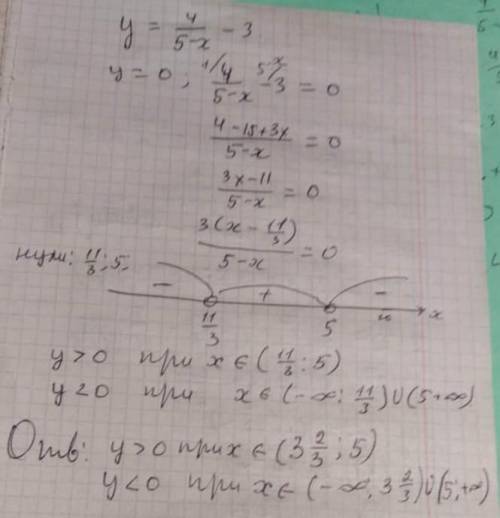 y = 4/(5-x) - 3
y = 0 ; 1/ 4/(5-x) 5-x/ -3 = 0
(4-15+3x)/(5-x) = 0
(3x-11)/(5-x) = 0
3(x - 11/3)/(5-x) = 0
нули: 11/3; 5;
- + -
11/3 5 x
y > 0 при x ∈ (11/3; 5)
y < 0 при x ∈ (-∞; 11/3) ∪ (5 +∞)
Отв: y > 0 при x ∈ (3 2/3; 5)
y < 0 при x ∈ (-∞, 3 2/3) ∪ (5; +∞)